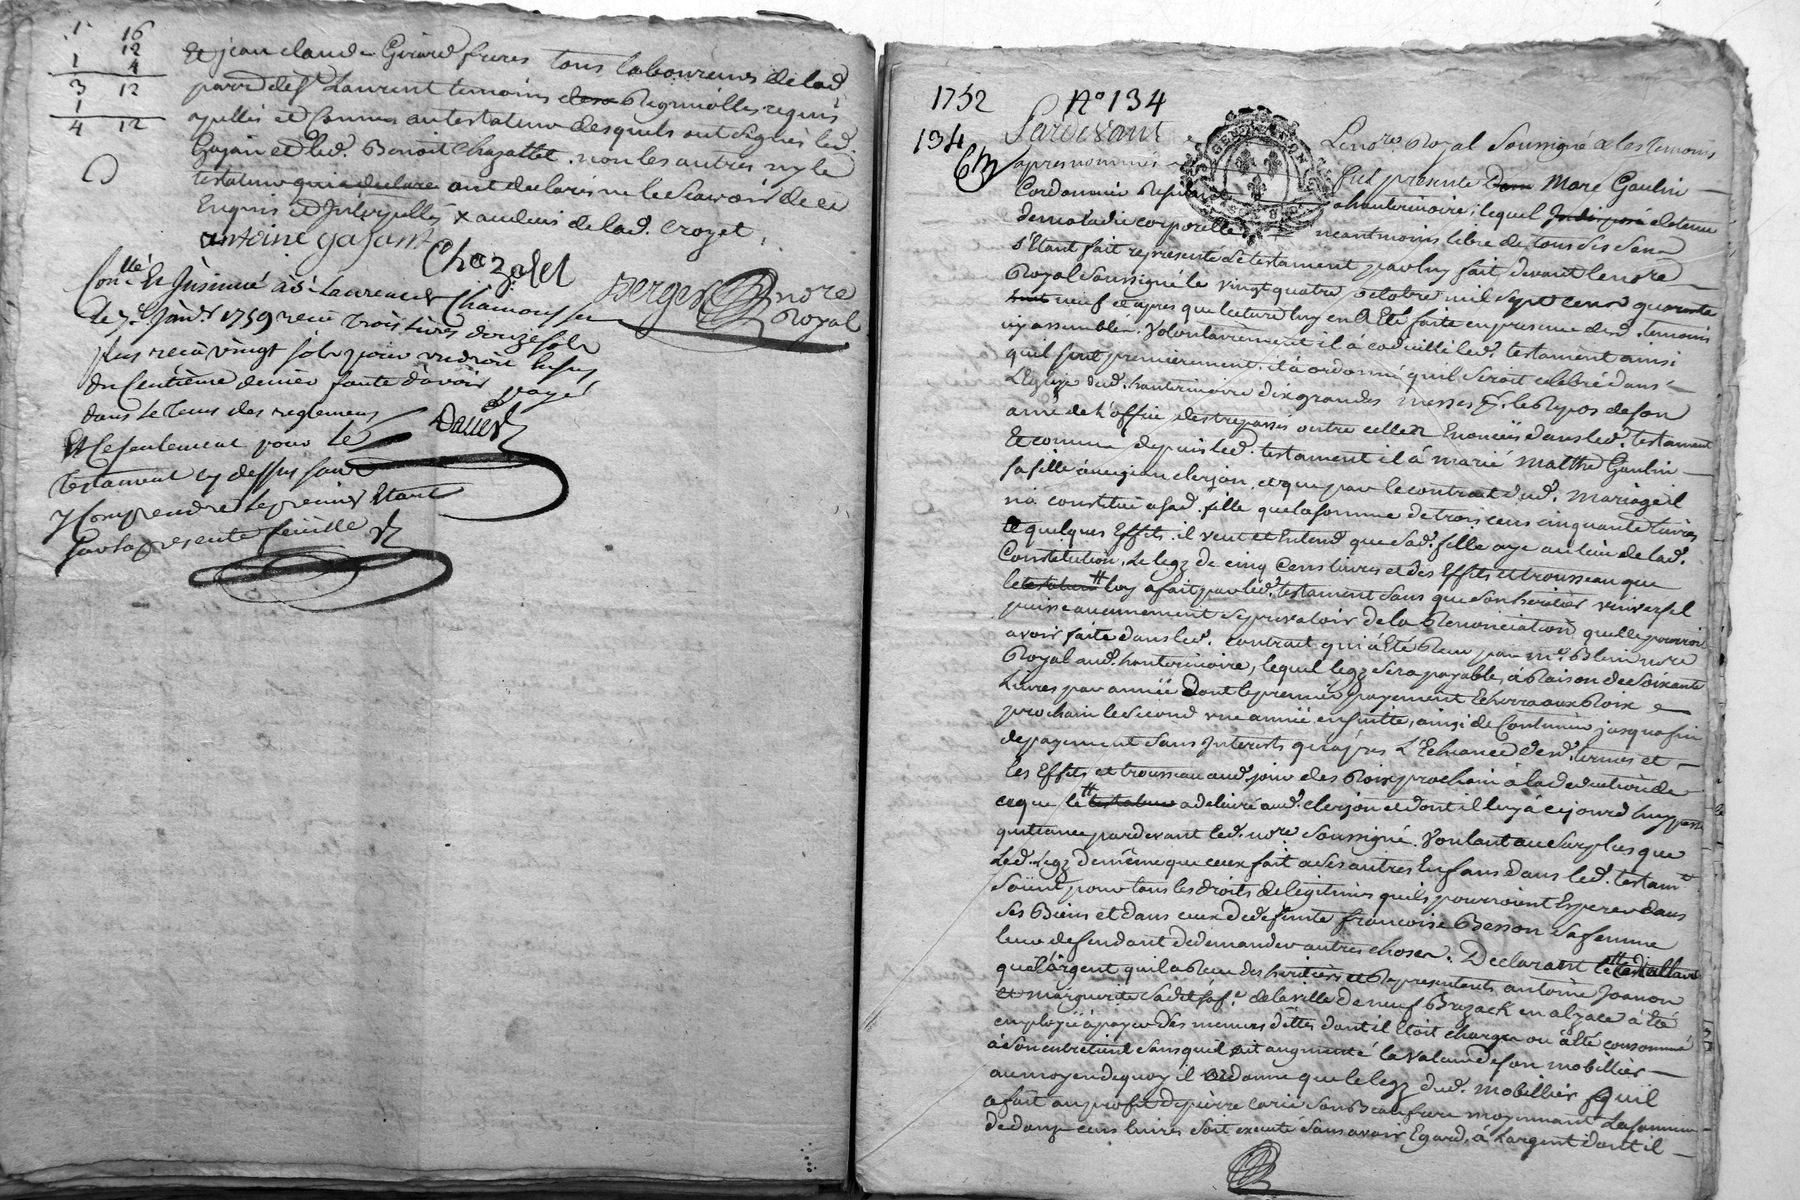 1 16
12
1 4
3 12
1
4 12
Et jean claude Girard freres tous laboureurs de lad.
parr. de St Laurent temoins requis
apellés et connus au testateur desquels ont signés led.
Gajan et led. Benoit Chazallet. non les autres ny le
testateur qui a declaré ont declarés ne le scavoir de ce
Enquis et Interpellés x au dessus de lad. croyet.
antoine gajant
Chazalet
berger nore
Royal
Conllé Et Insinué a St Laurent de Chamousset
le 7e Janvr 1759 reçu trois livres douze sols
plus reçu vingt sols pour un droit en sus
du Centième denier faute d'avoir payé
dans le tems des reglemens
Et ce seulement pour le
testament cy dessus sauf
y Comprendre le premier Etant
sur la presente feuille
1752 No 134
134 Pardevant Le nore Royal Soussigné et les temoins
apres nommés fut present Marc Gaulin
Cordonnier Resident a hauterivoire, lequel Indisposé detenu
de maladie corporelle neantmoins libre de tous ses sens
s'Etant fait representé le testament par luy fait devant le nore
Royal Soussigné le vingt quatre octobre mil sept cens quarante
huit neuf et apres que lecture luy en a Eté faite en presence desd. temoins
icy assemblés. Volontairement il a codicillé led. testament ainsi
quil suit premierement. il a ordonné quil seroit celebré dans
L'Eglise dud. hauterivoire dix grandes messes pr. le Repos de son
ame de l'office des trepassés outre celles Enoncées dans led. testament
Et comme depuis led. testament il a marié Matthe Gaulin
sa fille avec jean clerjon, et que par le contrat dud. Mariage il
n'a constitué a sad. fille que la somme de trois cens cinquante livres
et quelques Effets. il veut et Entend que sad. fille aye au lieu de lad.
Constitution, Le legz de cinq Cens livres et des Effets et trousseau que
le testateur luy a fait par led. testament sans que son heritier universel
puisse aucunement se prevaloir de la Renonciation quelle pourroit
avoir faite dans led. contrat qui a Eté Reçu par me. Blein nore
Royal aud. hauterivoire, lequel legz sera payable, a Raison de Soixante
Livres par année Dont le premier payement Echerra aux Roix
prochain le Second une année ensuitte, ainsi de Continuer jusqua fin
de payement sans Interests qu'apres L'Echeance desd. termes et
les Effets et trousseau aud. jour des Roix prochain a la deduction de
ce que le testateur a delivré aud. clerjon et dont il luy a cejourd huy passé
quittance pardevant led. nore Soussigné. Voulant au Surplus que
Led. legz de même que ceux fait a ses autres Enfans dans led. testamt
Soient pour tous les droits de legitimes quils pourroient Esperer dans
Ses Biens et dans ceux de defunte françoise Besson Sa femme
leur defendant de demander autres choses. Declarant le testateur
que l'argent quil a Reçu des heritiers et Representents antoine Joanon
et marguerite de la ville de neuf Brizack en alzace a été
employé a payer des menues dettes dont il Etoit chargé ou a été consommé
a Son entretient Sans quil ait augmenté la Valeur de son mobillier
au moyen de quoy il ordonne que le legz dud. Mobillier quil
a fait au profit de pierre carié Son Beau frere moyennant La somme
de douze cens livres Soit executé Sans avoir Egard, a Largent dont il